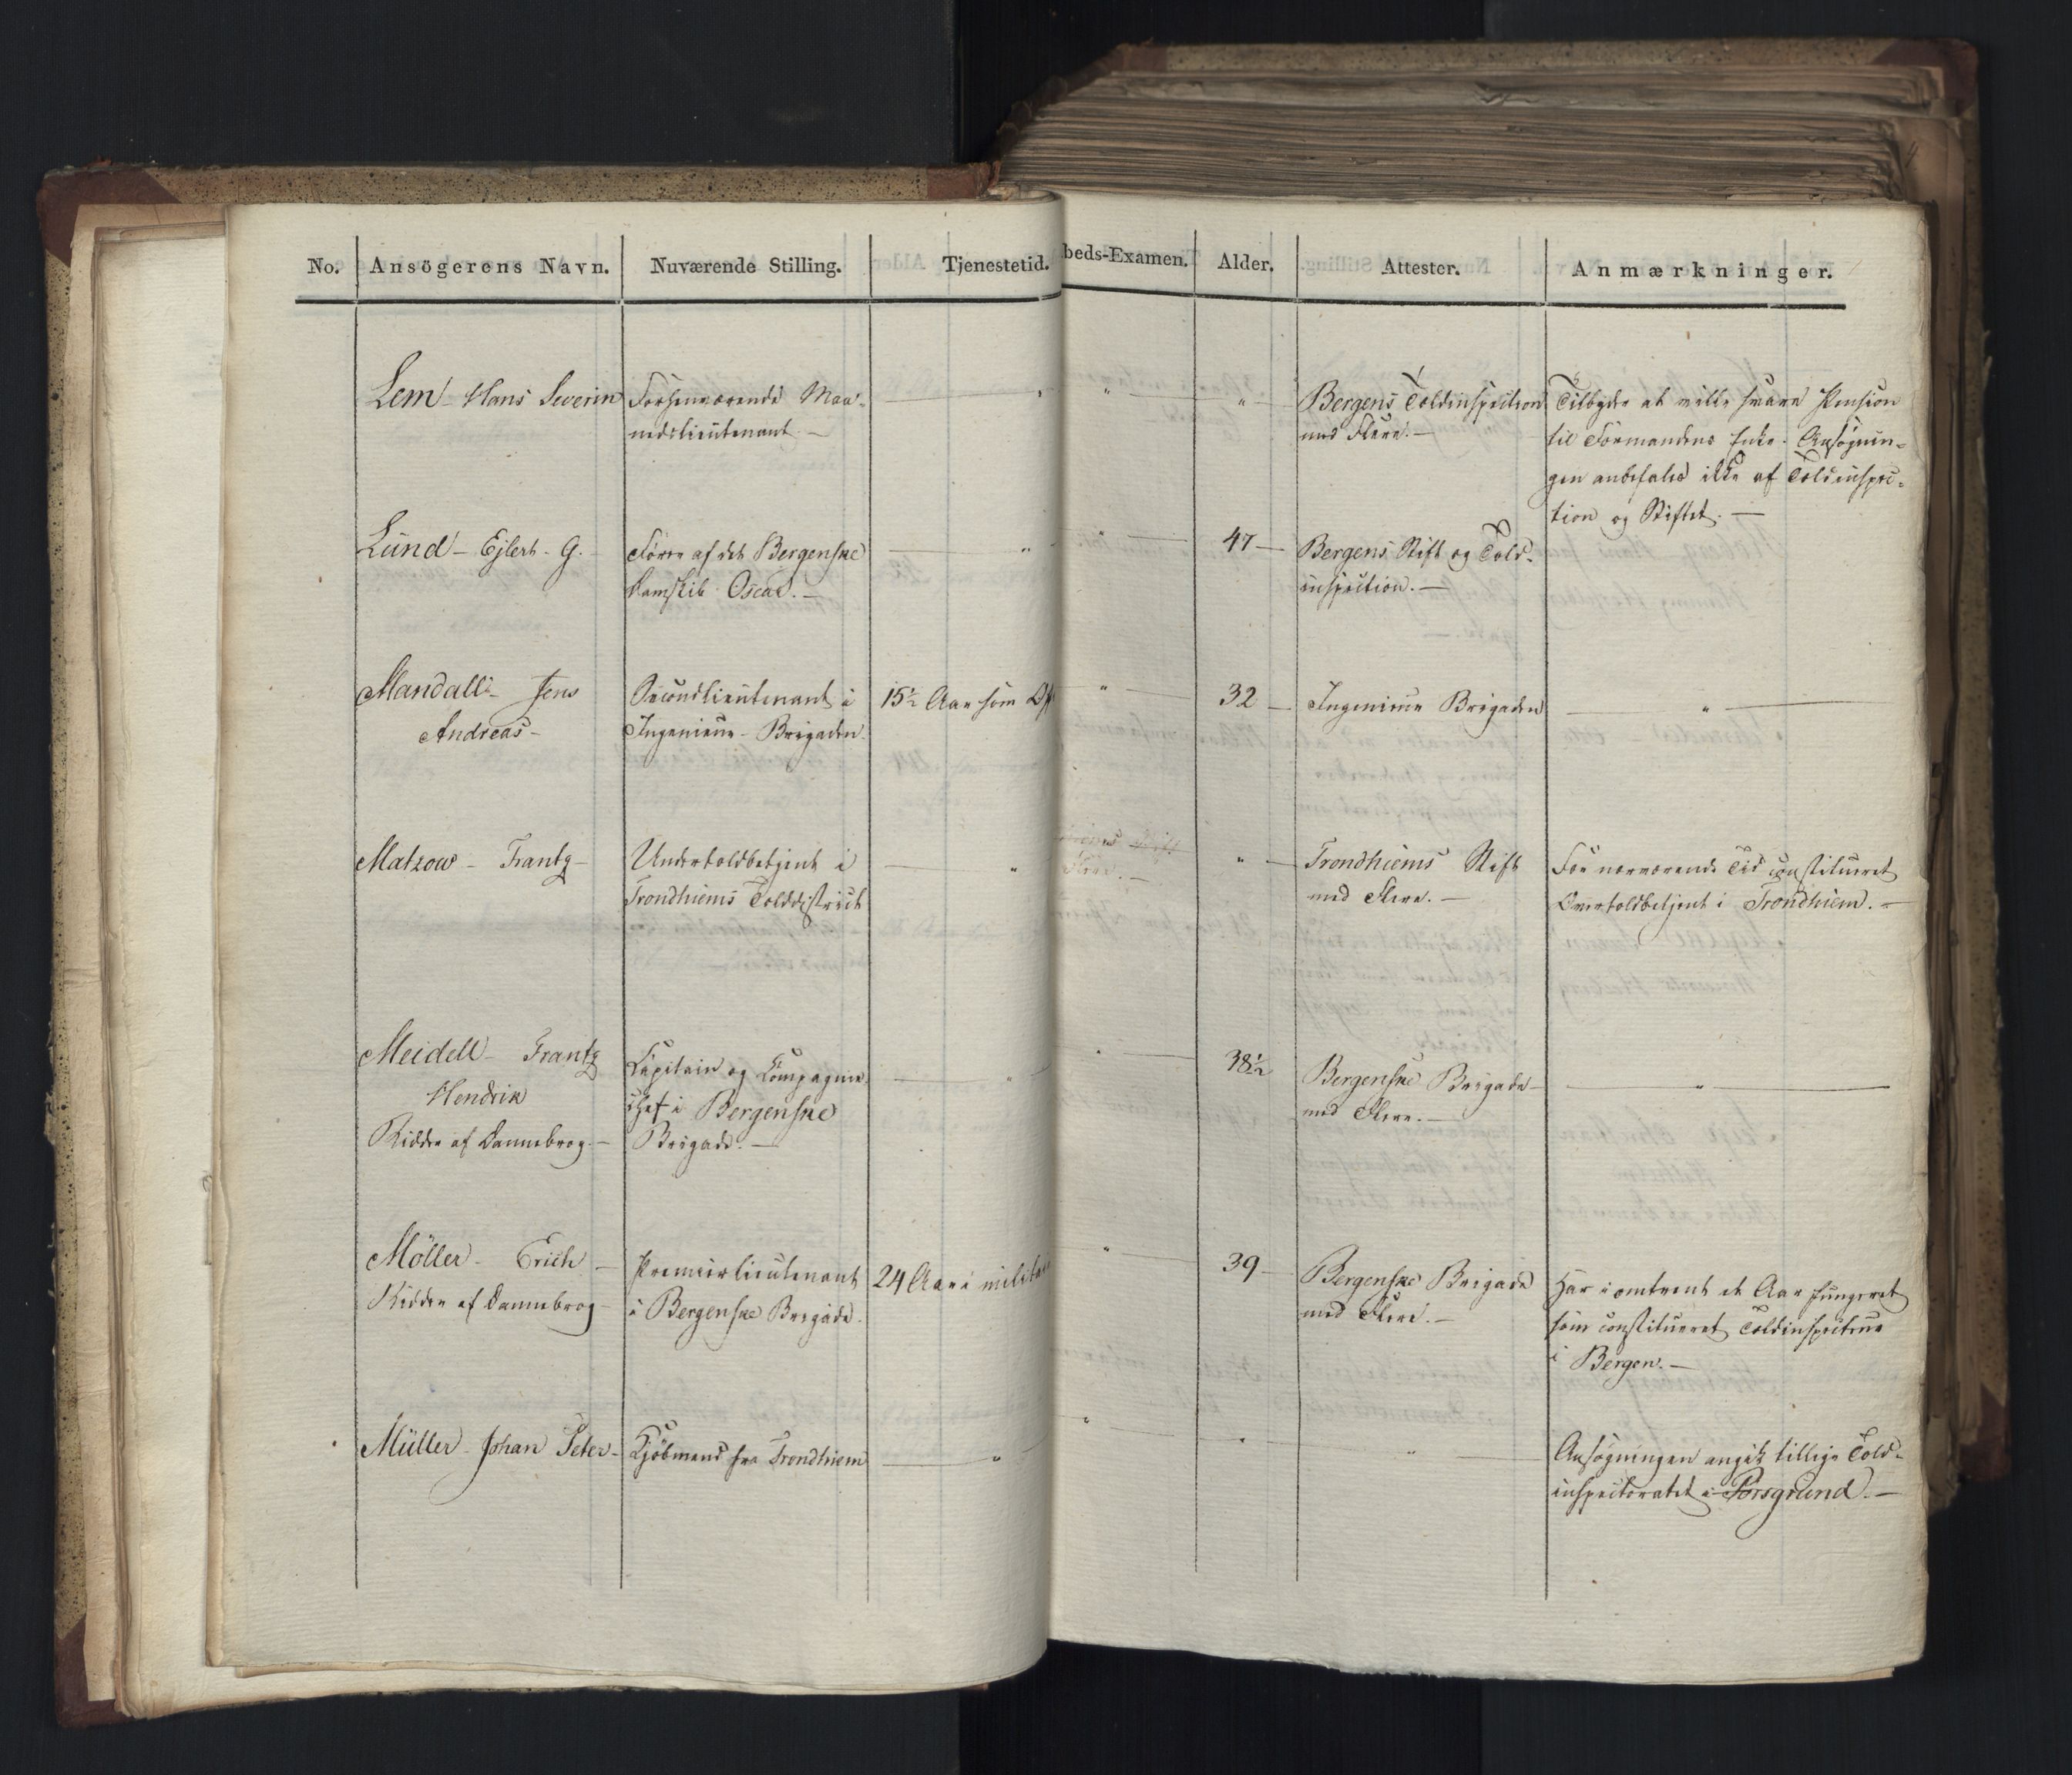 No. Ansögerens Navn. Nuværende Stilling. Tjenestetid. beds-Examen. Alder. Attester. Anmærkninger.
Lem - Hans Severin Forhenværende Maa- " " " Bergens Toldinspection Tilbyder at ville svare Pension
nedslieutenant - med Flere. - til Formandens Enke. Ansøgnin-
gen anbefales ikke af Toldinspec-
tion og Stiftet. -
Lund - Ejlert - G. - Fører af det Bergenske " " 47 - Bergens Stift og Told-
Damskib Oscar. - inspection. -
Mandall - Jens Secondlieutenant i 15½ Aar som Off " 32 - Ingenieur Brigaden "
Andreas - Ingenieur - Brigaden.
Matzow - Frantz - Undertoldbetjent i " " - Trondhiems Stift For nærværende Tid constitueret
Trondhiems Tolddistrict med Flere. - Overtoldbetjent i Trondhiem. -
Meidell - Frantz Capitain og Compagnie- " " 38½ Bergenske Brigade - "
Hendrik chef i Bergenske med Flere. -
Ridder af Dannebrog. - Brigade. -
Möller - Erich - Premierlieutenant 24 Aar i milita " 39 - Bergenske Brigade Har i omtrent et Aar fungeret
Ridder af Dannebrog - i Bergenske Brigade. med Flere. - som constitueret Toldinspecteur
i Bergen. -
Müller - Johan Peter - Kjøbmand fra Trondhiem " " " " Ansøgningen angik tillige Told-
inspectoratet i Porsgrund. -